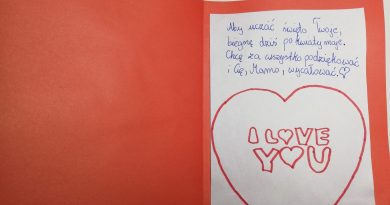 Aby uczcić święto Twoje,
biegnę dziś po kwiaty moje.
Chcę za wszystko podziękować
i Cię, Mamo, wycałować.♡
I L♡VE
Y♡U